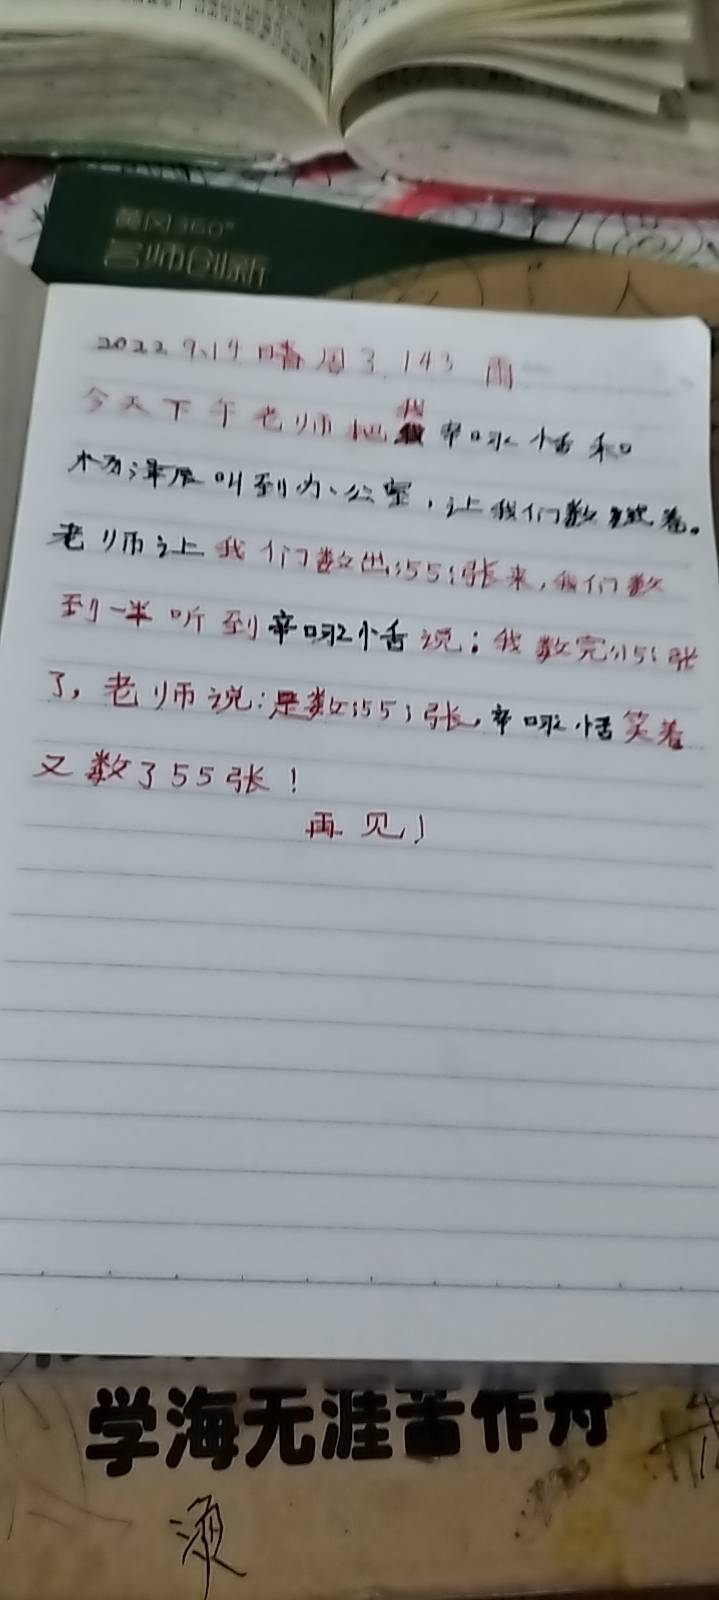 黄冈360°
名师创新
2022 9.14 晴 周3 143 雨
今天下午老师把我 辛咏恬和
杨泽辰叫到办公室,让我们数试卷。
老师让我们数出55张来,我们数
到一半听到辛咏恬说:我数完15张
了,老师说:是数55张,辛咏恬笑着
又数了55张!
再见!
学海无涯苦作舟